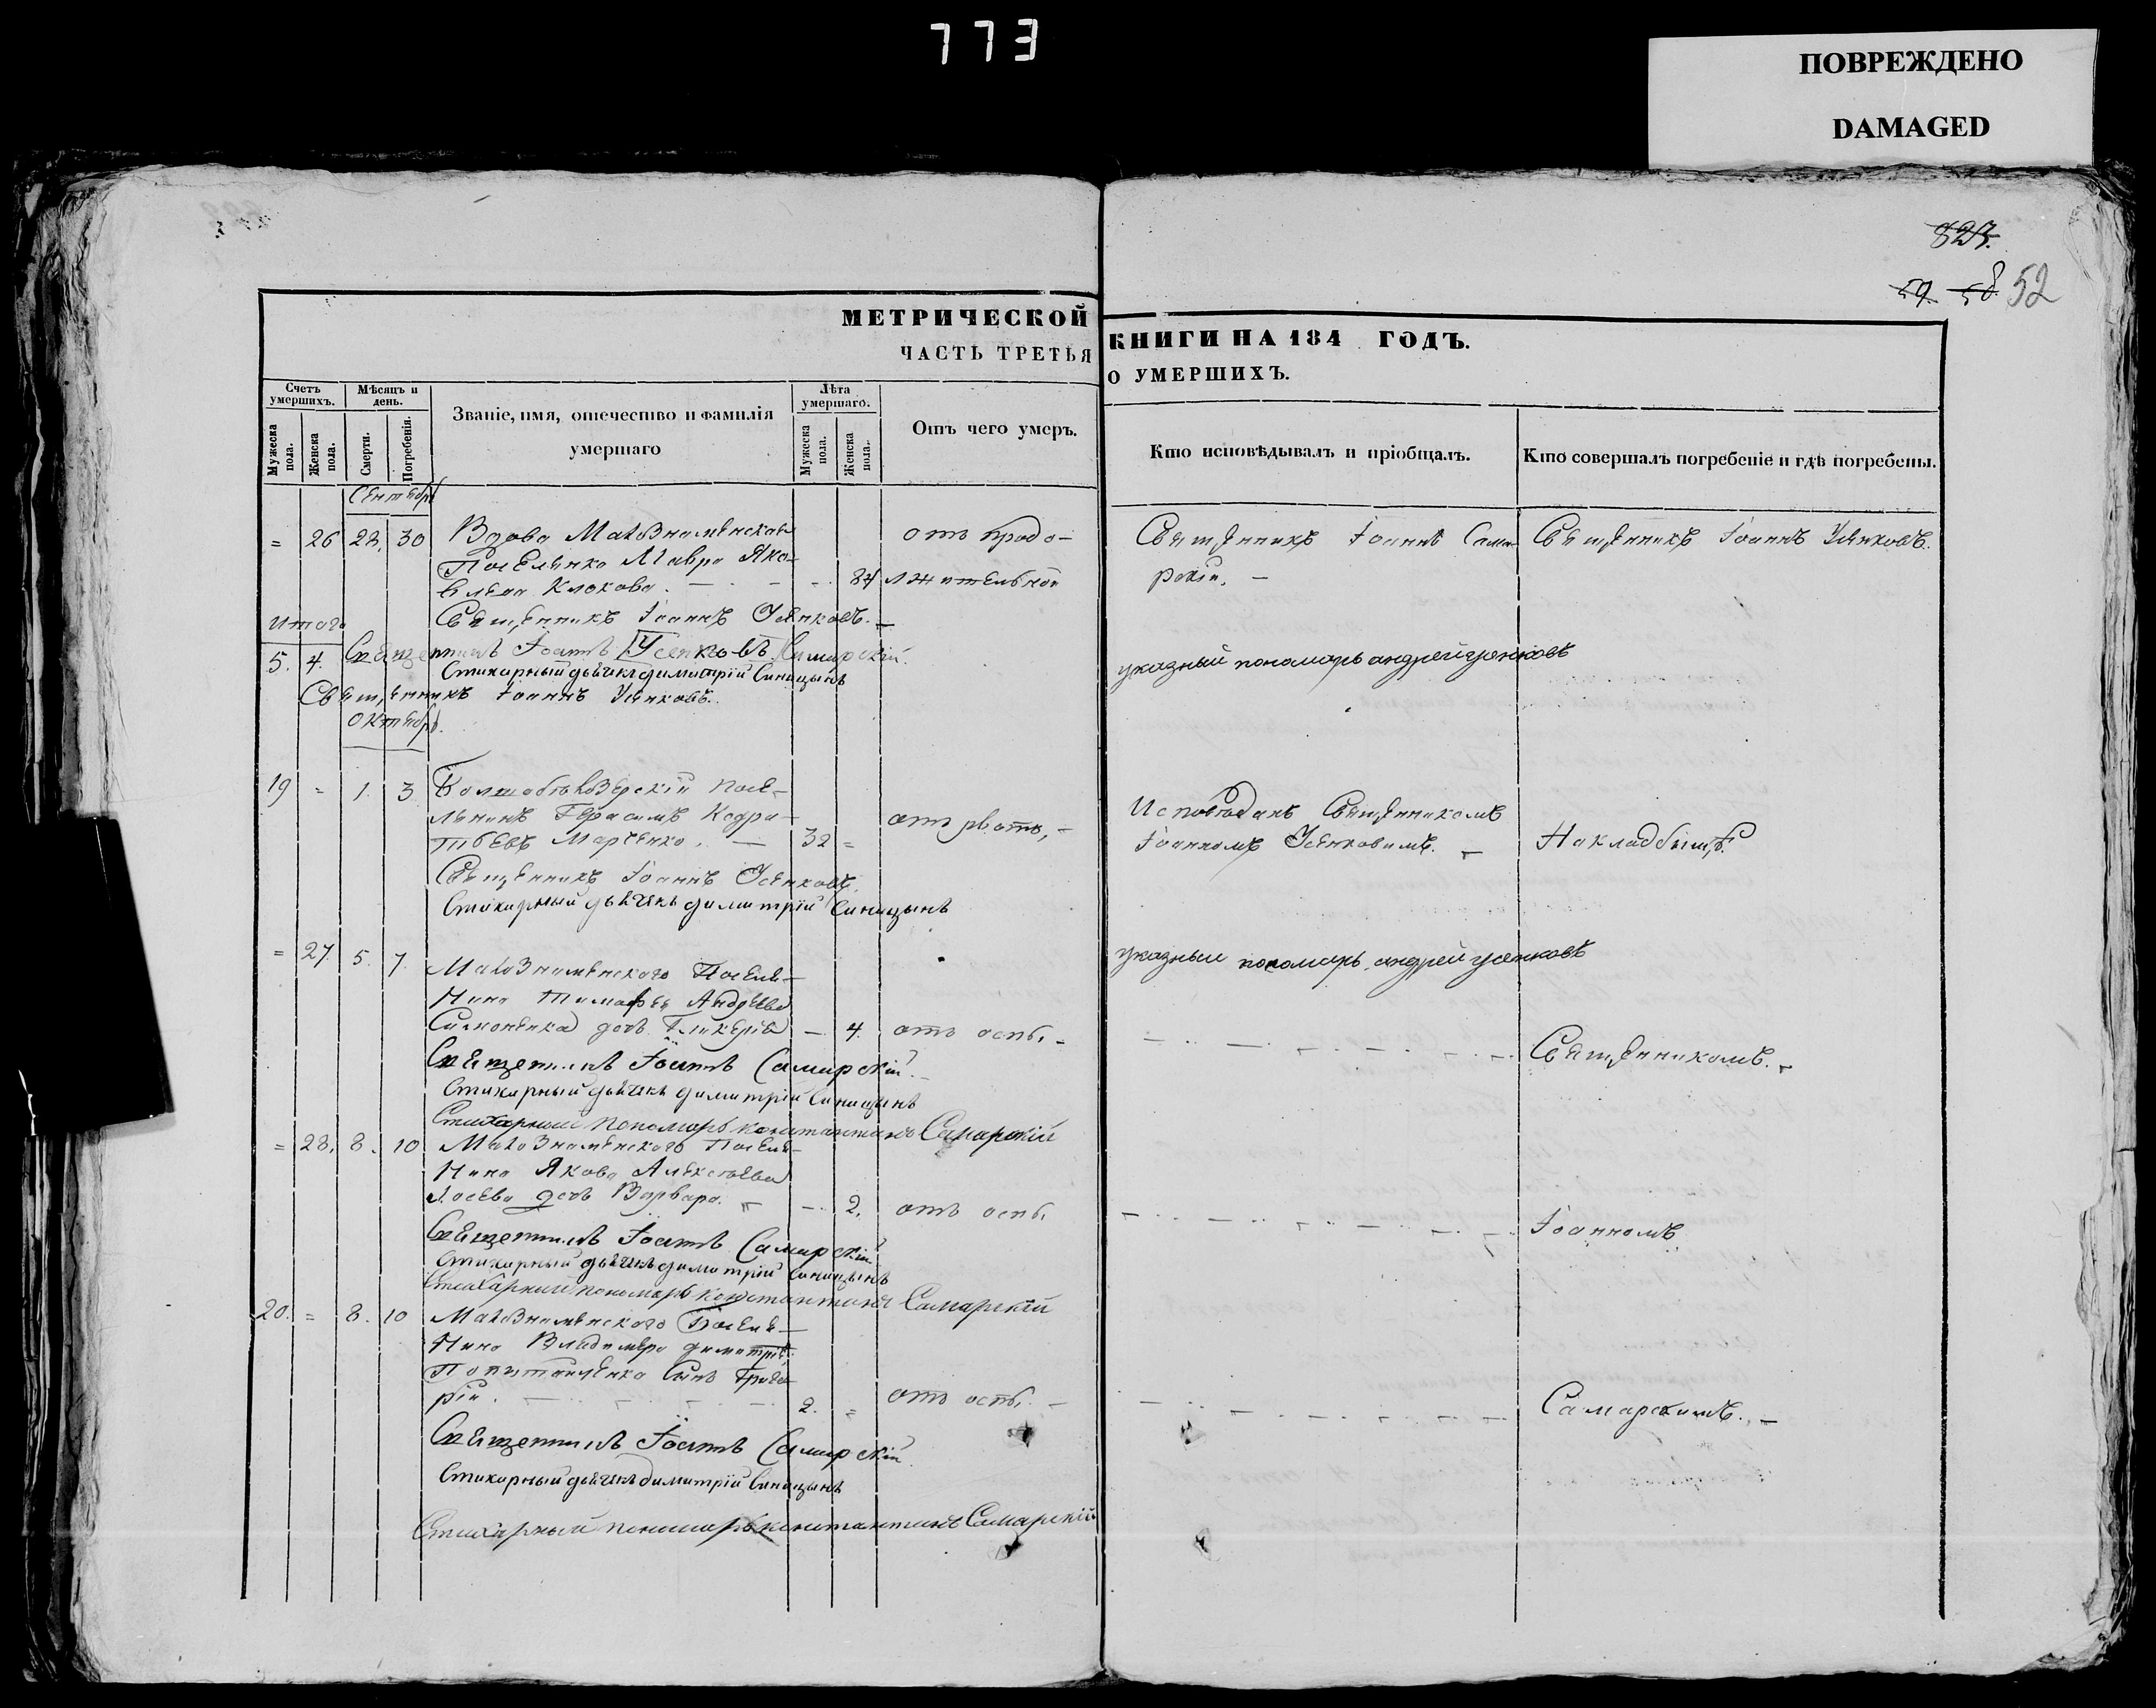 773
ПОВРЕЖДЕНО
DAMAGED
823.
59. 58. 52
МЕТРИЧЕСКОЙ КНИГИ НА 184 ГОДЪ.
ЧАСТЬ ТРЕТЬЯ О УМЕРШИХЪ.
Счетъ умершихъ.
Мѣсяцъ и день.
Званіе, имя, отечество и фамилія умершаго
Лѣта умершаго.
Отъ чего умеръ.
Кто исповѣдывалъ и пріобщалъ.
Кто совершалъ погребеніе и гдѣ погребены.
Мужеска пола.
Женска пола.
Смерти.
Погребенія.
Мужеска пола.
Женска пола.
Сентябрь
= 26 28. 30 Вдова
Поселянка Мавра Яко-
влева Клокова. 84
отъ продо-
лжительной
Священникъ Іоаннъ Сама-
рскій.
Священникъ Іоаннъ Усенковъ.
Священникъ Іоаннъ Усенковъ.
итого
5. 4. Священникъ Іоаннъ Усенковъ Самарскій.
Стихарный дьячекъ димитрій Синицынъ
указный пономарь андрей усенковъ
Священникъ Іоаннъ Усенковъ.
Октябрь.
19 = 1. 3 посе-
лянинъ Герасимъ Кодра-
тьевъ Марченко. 32 =
отъ рвоты,
Исповѣданъ Священникомъ
Іоанномъ Усенковымъ.
На кладбищѣ.
Священникъ Іоаннъ Усенковъ.
Стихарный дьячекъ димитрій Синицынъ
указный пономарь андрей усенковъ
= 27 5. 7. Поселя-
нина Тимофея Андреева
Симоненка дочь Гликерія 4. отъ оспы
Священникомъ.
Священникъ Іоаннъ Самарскій.
Стихарный дьячекъ димитрій Синицынъ
Стихарный пономарь константинъ Самарскій
= 28. 8. 10 Поселя-
нина Якова Алексѣева
Лосева дочь Варвара. 2. отъ оспы
Іоанномъ
Священникъ Іоаннъ Самарскій
Стихарный дьячекъ димитрій Синицынъ
Стихарный пономарь констант инъ Самарскій
20. = 8. 10 Поселя-
нина Владимера димитріе.
сынъ Григо-
рій. 2. = отъ оспы.
Самарскимъ.
Священникъ Іоаннъ Самарскій.
Стихарный дьячекъ димитрій Синицынъ
Стихарный пономарь константинъ Самарскій